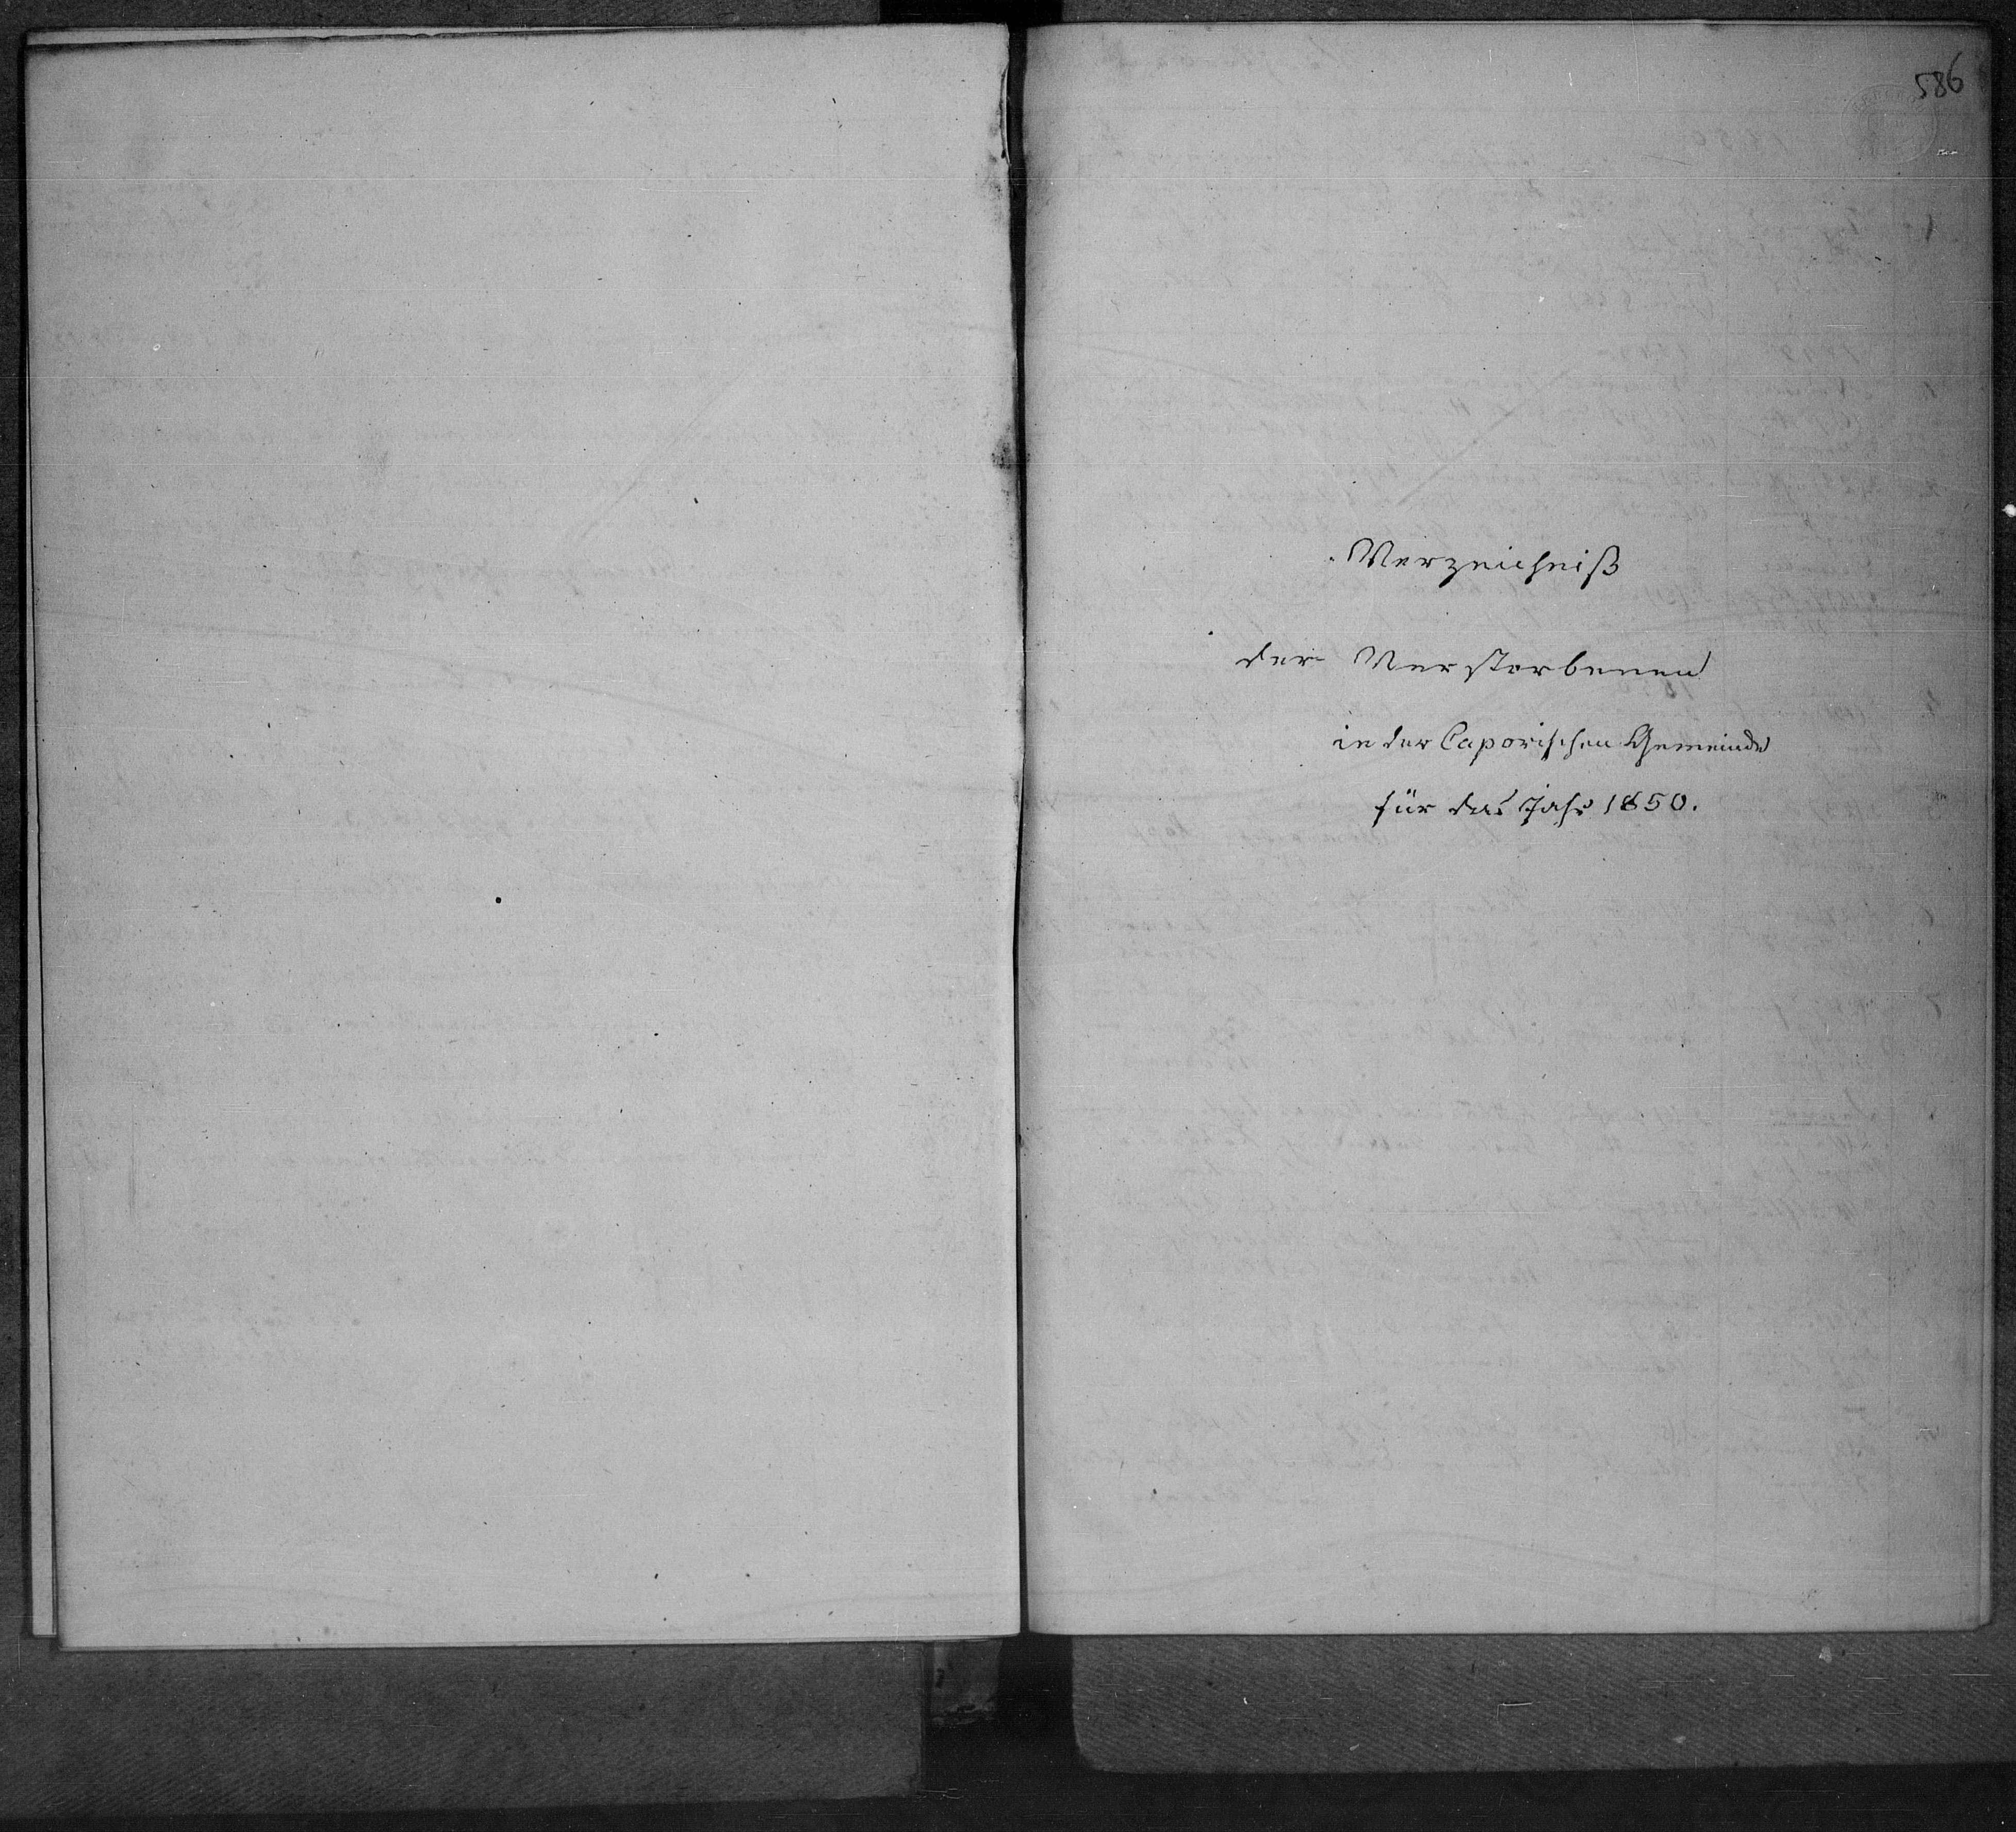 586
Verzeichniß
der Verstorbenen
in der Caporischen Gemeinde
für das Jahr 1850.